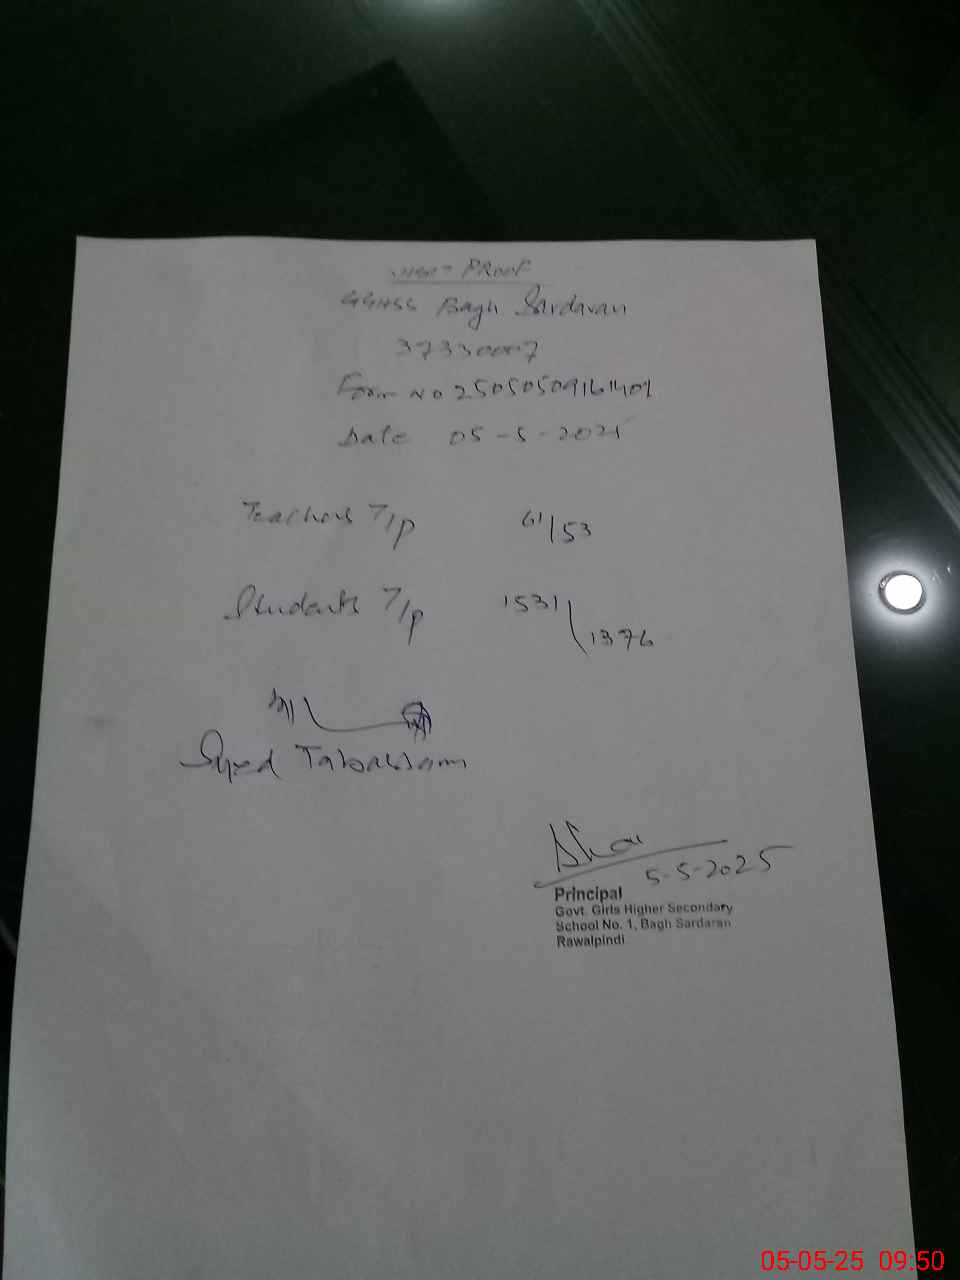 VISIT PROOF
GGHSS Bagh Sardaran
37330007
Form No 25050509161401
Date 05-5-2025
Teachers T/P 61/53
Students T/P 1531/1376
Syed Tabassam
5-5-2025
Principal
Govt. Girls Higher Secondary
School No. 1, Bagh Sardaran
Rawalpindi
05-05-25 09:50